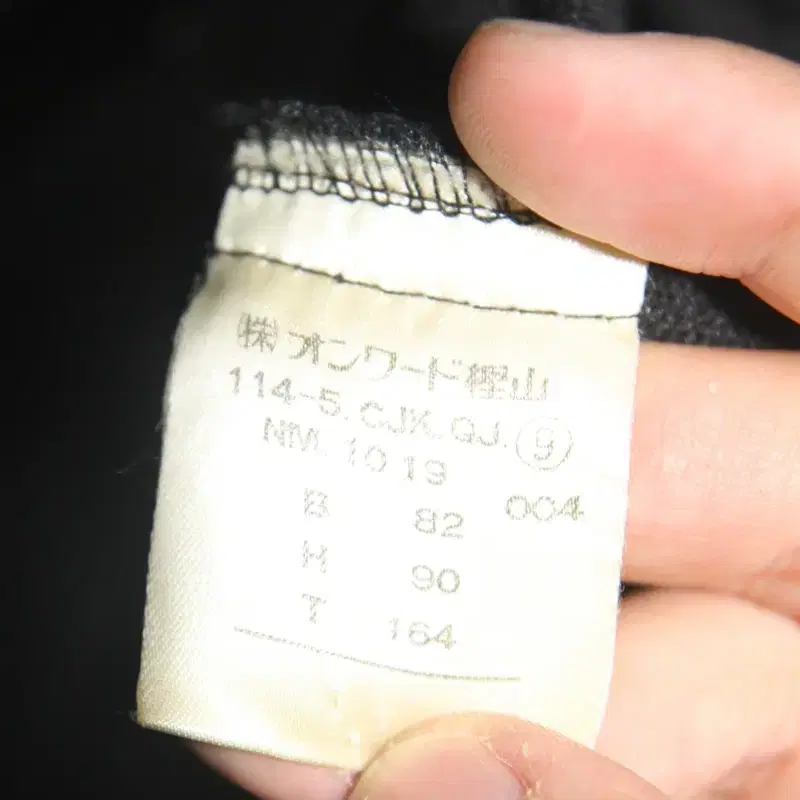 ㈱オンワード樫山
114-5.CJK.QJ.⑨
NM. 10 19
004
B 82
H 90
T 164